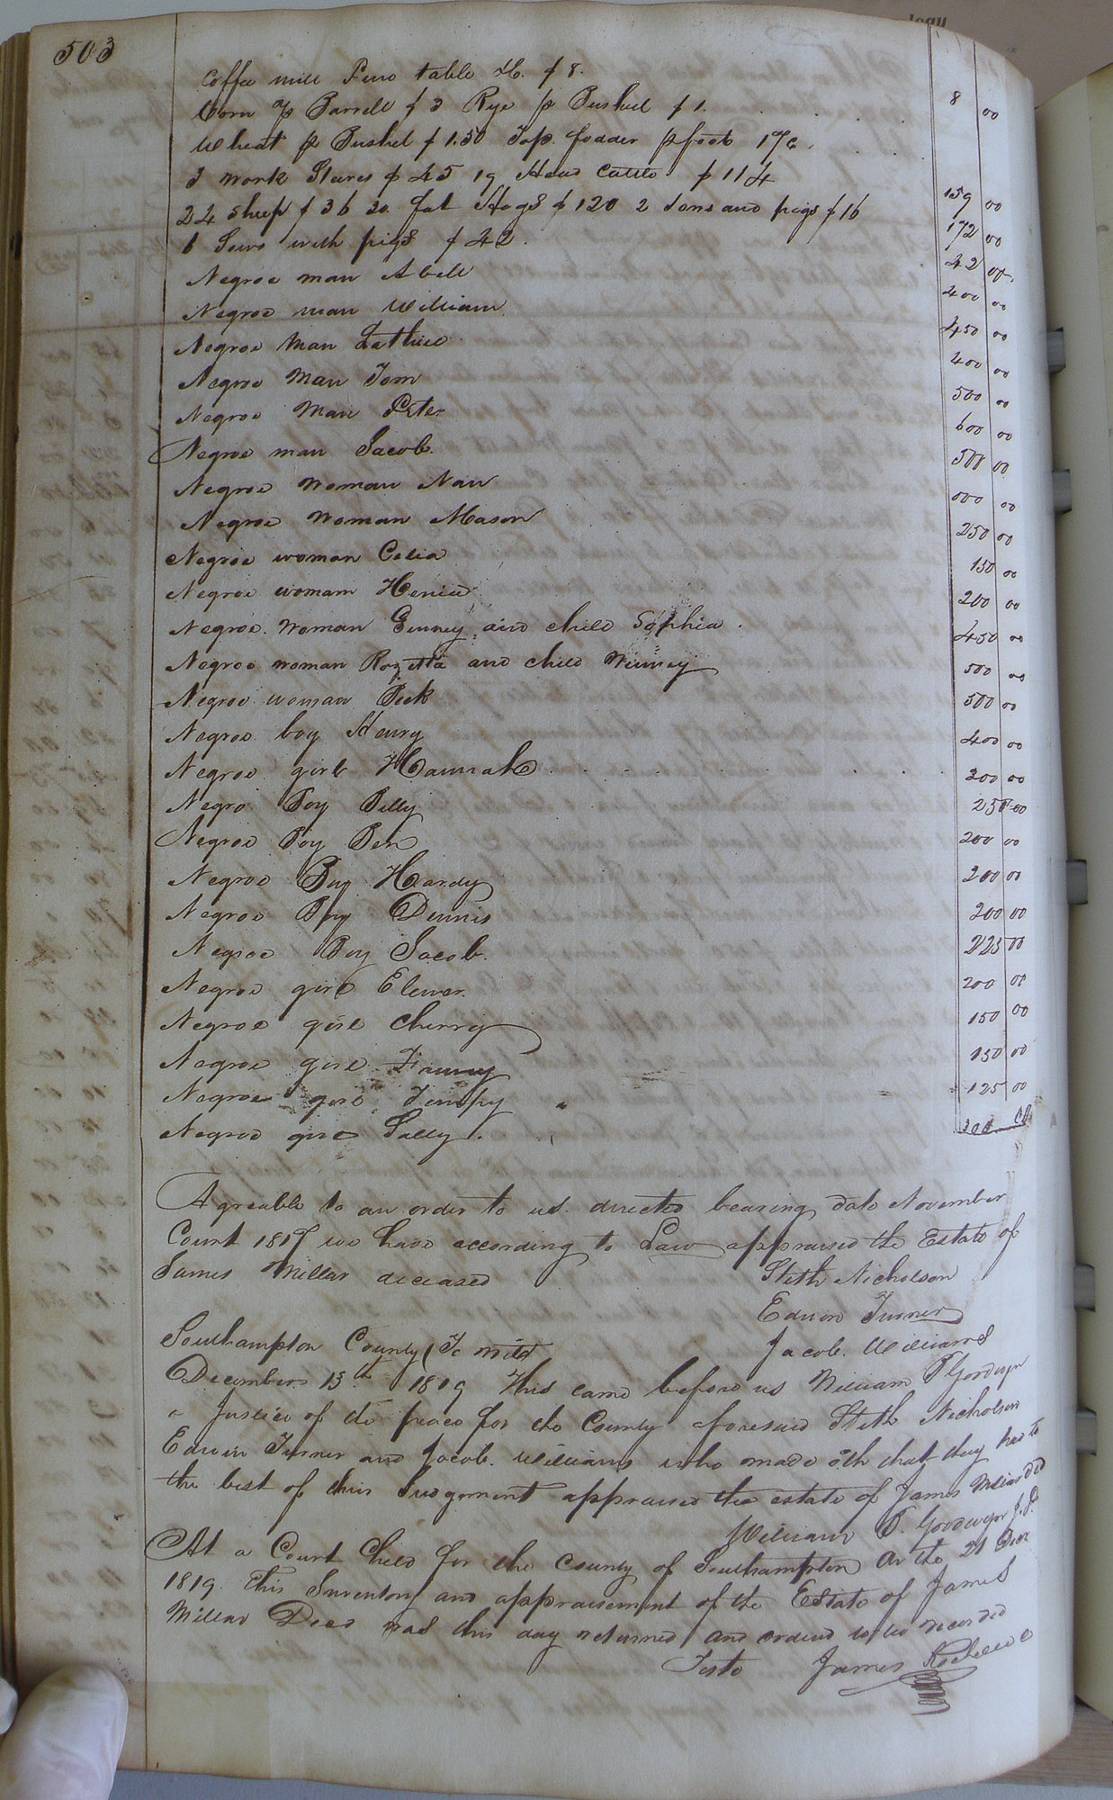 503
Coffee mill Pine table &c. $8. 8 00
Corn p Barrell $3 Rye p Bushel $1.
Wheat p Bushel $1.50 Top fodder p foot 17c.
3 work Stears $45 19 Head Cattle $114 159 00
24 sheep $36 20 fat Hogs $120 2 sows and pigs $16 172 00
6 Sows with pigs $42. 42 00
Negroe man Abell 400 00
Negroe man William 450 00
Negroe Man 400 00
Negroe Man Tom 500 00
Negroe Man Peter 600 00
Negroe man Jacob. 500 00
Negroe Woman Nan 000 00
Negroe Woman Mason 250 00
Negroe woman Celia 150 00
Negroe womam 200 00
Negroe Woman Ginney and child Sophia. 450 00
Negroe woman Rozetta and child Winney 500 00
Negroe woman 500 00
Negroe boy Henry 400 00
Negroe girl Hannah 200 00
Negro Boy Billy 250 00
Negroe Boy Ben 200 00
Negroe Boy Hardy 200 00
Negroe Boy Dennis 200 00
Negroe Boy Jacob. 225 00
Negroe girl 200 00
Negroe girl Cherry 150 00
Negroe girl 150 00
Negroe girl Tempy 125 00
Negroe girl Sally.
Agreable to an order to us directed bearing date November
Court 1817 we have according to Law appraised the Estate of
James Millar deceased Stith Nicholson
Edwin Turner
Southampton County (To wit Jacob. Williams
December 13th 1819 This came before us William B Goodwyn
a Justice of the peace for the County aforesaid Stith Nicholson
Edwin Turner and Jacob. Williams who made oth that they had to
the best of their Judgement appraised the estate of James Millar Decd
William B. Goodwyn J.P.
At a Court held for the County of Southampton on the 21 Decr
1819. This Inventory and appraisement of the Estate of James
Millar Decd was this day returned and ordered to be recorded
Teste James Rochelle C